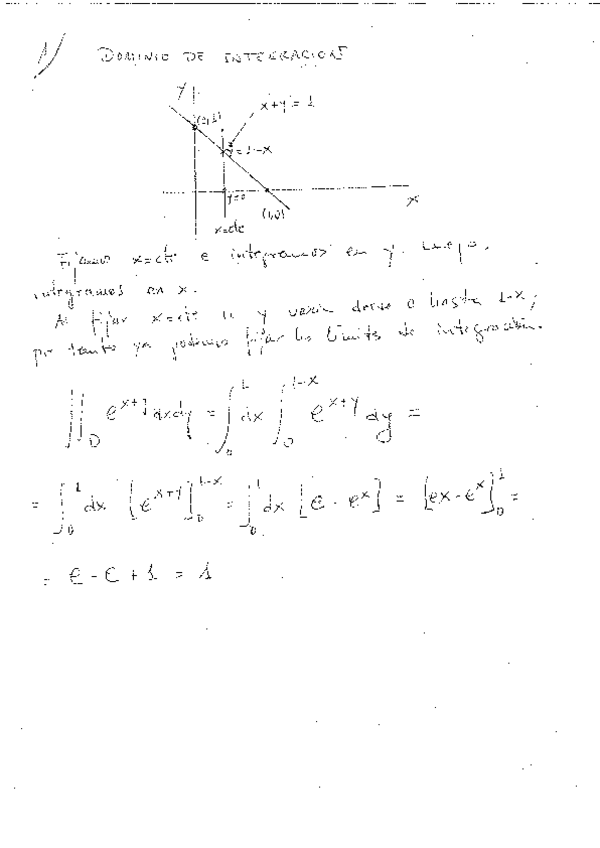 1/ DOMINIO DE INTEGRACION
y
(0,1)
x+y=1
y=1-x
y=0
x
(1,0)
x=cte
Fijamos x=cte e integramos en y. Luego,
integramos en x.
Al fijar x=cte la y varía desde 0 hasta 1-x;
por tanto ya podemos fijar los límites de integración.
∬_D e^{x+y} dxdy = ∫_0^1 dx ∫_0^{1-x} e^{x+y} dy =
= ∫_0^1 dx [e^{x+y}]_0^{1-x} = ∫_0^1 dx [e - e^x] = [ex - e^x]_0^1 =
= e - e + 1 = 1